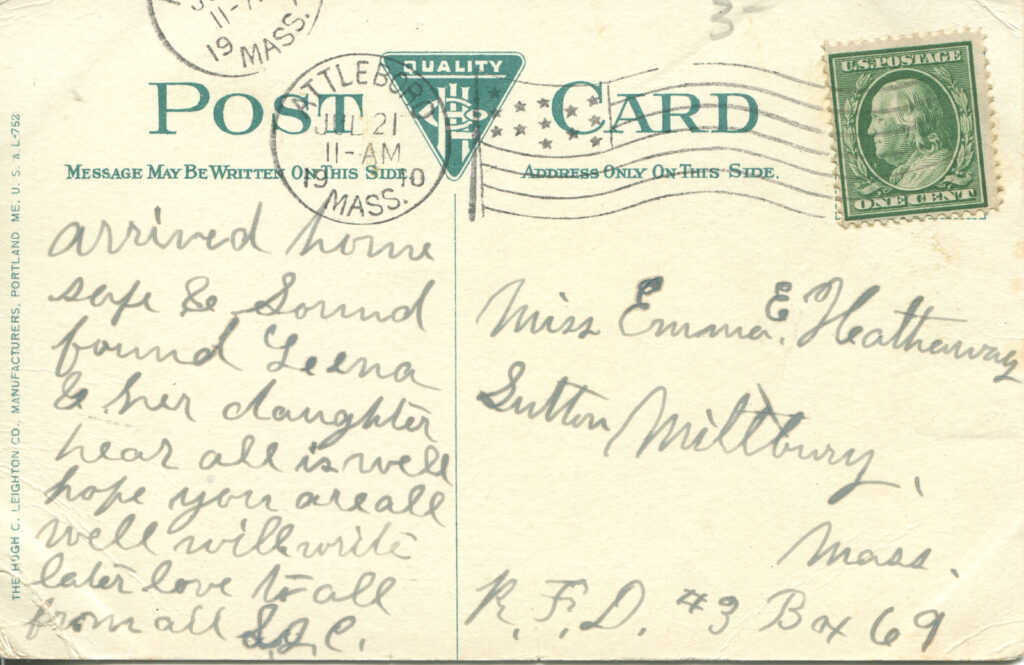 11-A
19 MASS.
3-
QUALITY
POST CARD
ATTLEBORO
JUL 21
11-AM
19 10
MASS.
U.S. POSTAGE
ONE CENT
MESSAGE MAY BE WRITTEN ON THIS SIDE.
ADDRESS ONLY ON THIS SIDE.
THE HUGH C. LEIGHTON CO., MANUFACTURERS, PORTLAND, ME. U. S. A. L-752
arrived home
safe & Sound
found Leena
& her daughter
hear all is well
hope you are all
well will write
later love to all
from all
Miss Emma E. Hathaway
Sutton Millbury,
Mass.
R. F. D. #3 Box 69